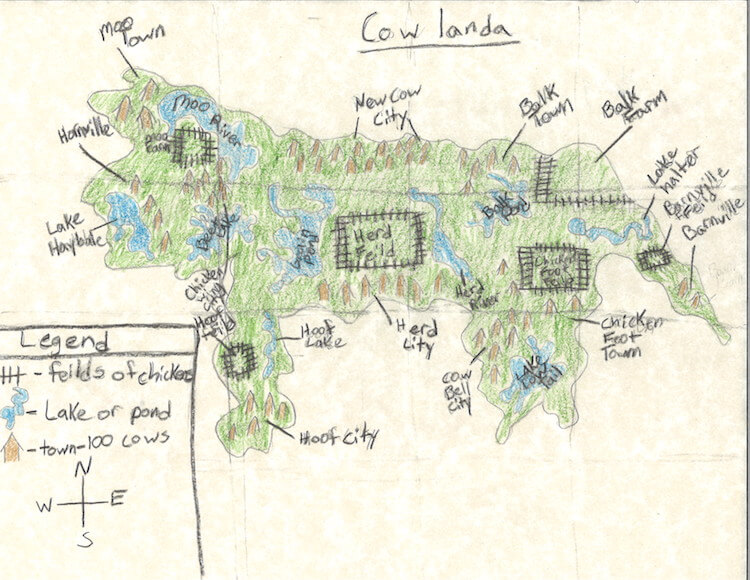 Cow landa
Moo
Town
Moo River
Moo
Farm
Hornville
Lake
New Cow
City
Balk
Town
Balk
Farm
Lake
halter
Barnville
Feild
Barnville
Balk
Herd
Feild
Herd
River
Chicken
Foot
Chicken
City
Hoof
Lake
Herd
City
Cow
Bell
City
Chicken
Foot
Town
Lake
Hoof City
Legend
- feilds of chicken
- Lake or pond
- town-100 cows
N
W
E
S